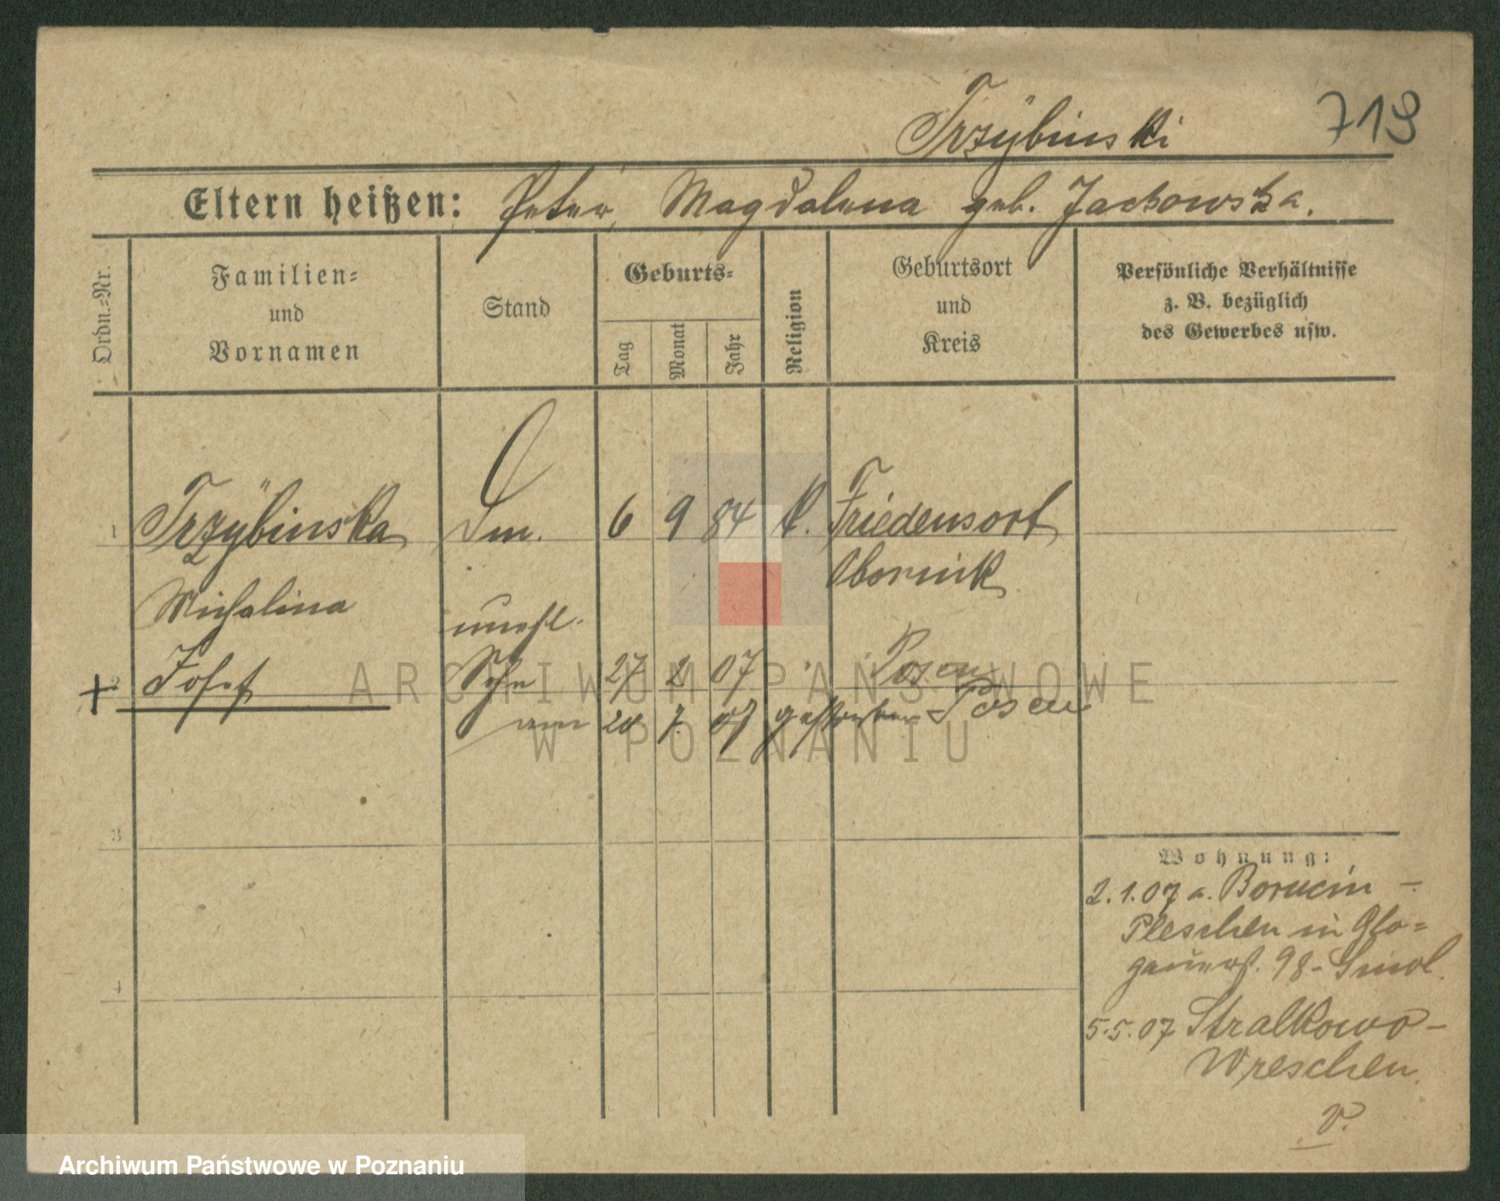 Trzybinski 719
Eltern heißen: Peter, Magdalena geb. Jackowska.
Ordn.=Nr.
Familien=
und
Vornamen
Stand
Geburts=
Tag
Monat
Jahr
Religion
Geburtsort
und
Kreis
Persönliche Verhältnisse
z. B. bezüglich
des Gewerbes usw.
1 Trzÿbinska 6 9 84 k. Friedensort
Obornik
Michalina
unehl.
2 Josef Sohn 27 2 07 Posen
am 20 7. 07 gestorben Posen
3
4
Wohnung:
2.1.07 a. Borucin -
Pleschen in Glo=
gauerst. 98 - Smol.
5.5.07 Stralkowo -
Wreschen.
v.
ARCHIWUM PAŃSTWOWE
W POZNANIU
Archiwum Państwowe w Poznaniu